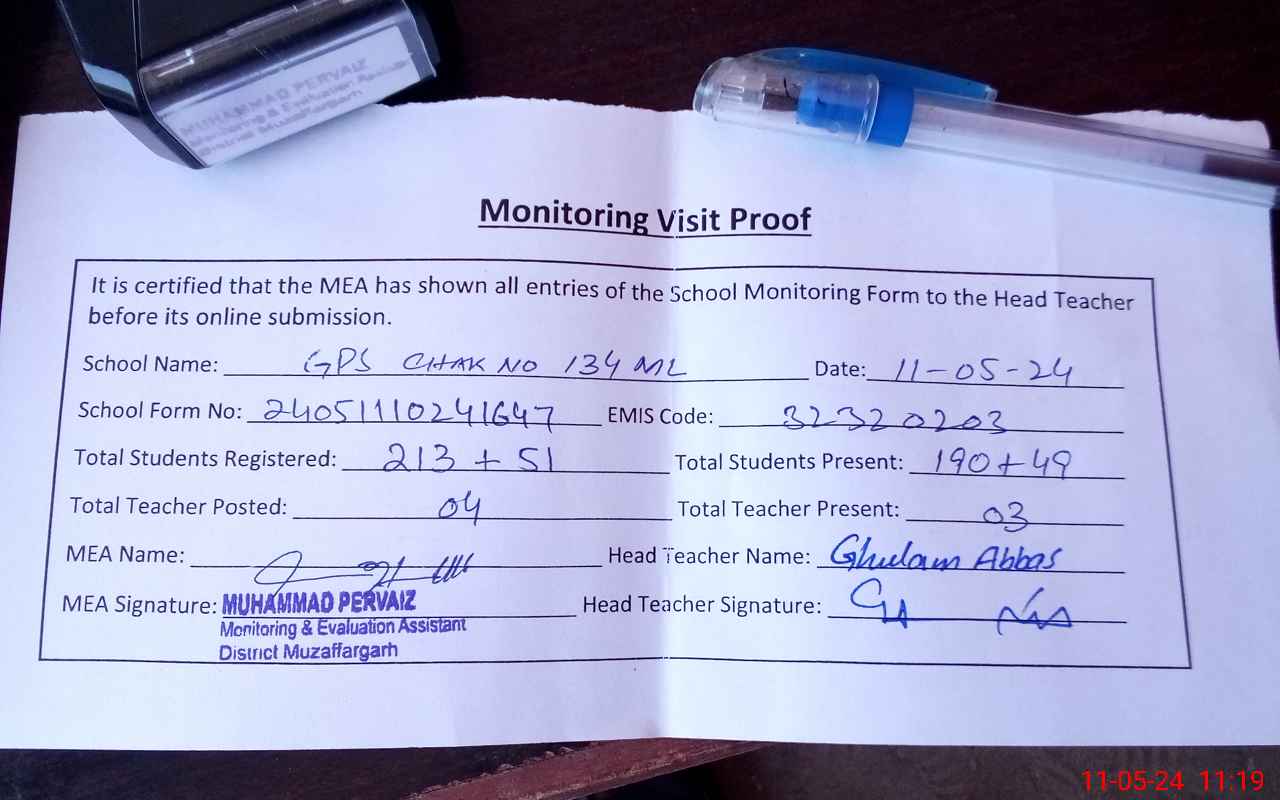 MUHAMMAD PERVAIZ
Monitoring & Evaluation Assistant
District Muzaffargarh
Monitoring Visit Proof
It is certified that the MEA has shown all entries of the School Monitoring Form to the Head Teacher
before its online submission.
School Name: GPS CHAK NO 134 ML Date: 11-05-24
School Form No: 24051110241647 EMIS Code: 32320203
Total Students Registered: 213 + 51 Total Students Present: 190+49
Total Teacher Posted: 04 Total Teacher Present: 03
MEA Name: Head Teacher Name: Ghulam Abbas
MEA Signature: MUHAMMAD PERVAIZ Head Teacher Signature:
Monitoring & Evaluation Assistant
District Muzaffargarh
11-05-24 11:19